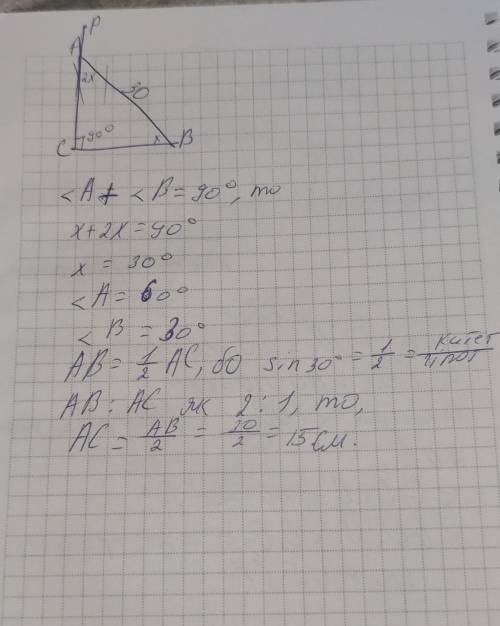 P
A
2x
30
C 90° x B
<A + <B = 90°, то
x + 2x = 90°
x = 30°
<A = 60°
<B = 30°
AB = 1/2 AC, бо sin 30° = 1/2 = катет/гіпот
AB : AC як 2 : 1, то,
AC = AB/2 = 30/2 = 15 см.